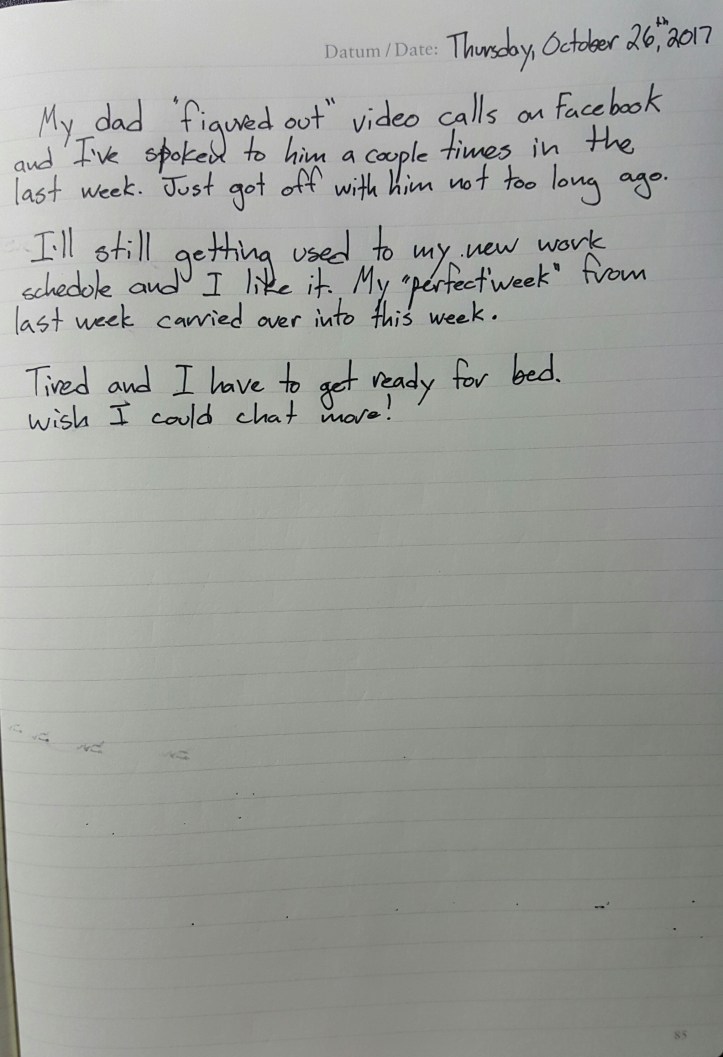 Datum / Date: Thursday, October 26th, 2017
My dad "figured out" video calls on Facebook
and I've spoken to him a couple times in the
last week. Just got off with him not too long ago.
I'll still getting used to my new work
schedule and I like it. My "perfect week" from
last week carried over into this week.
Tired and I have to get ready for bed.
Wish I could chat more!
85